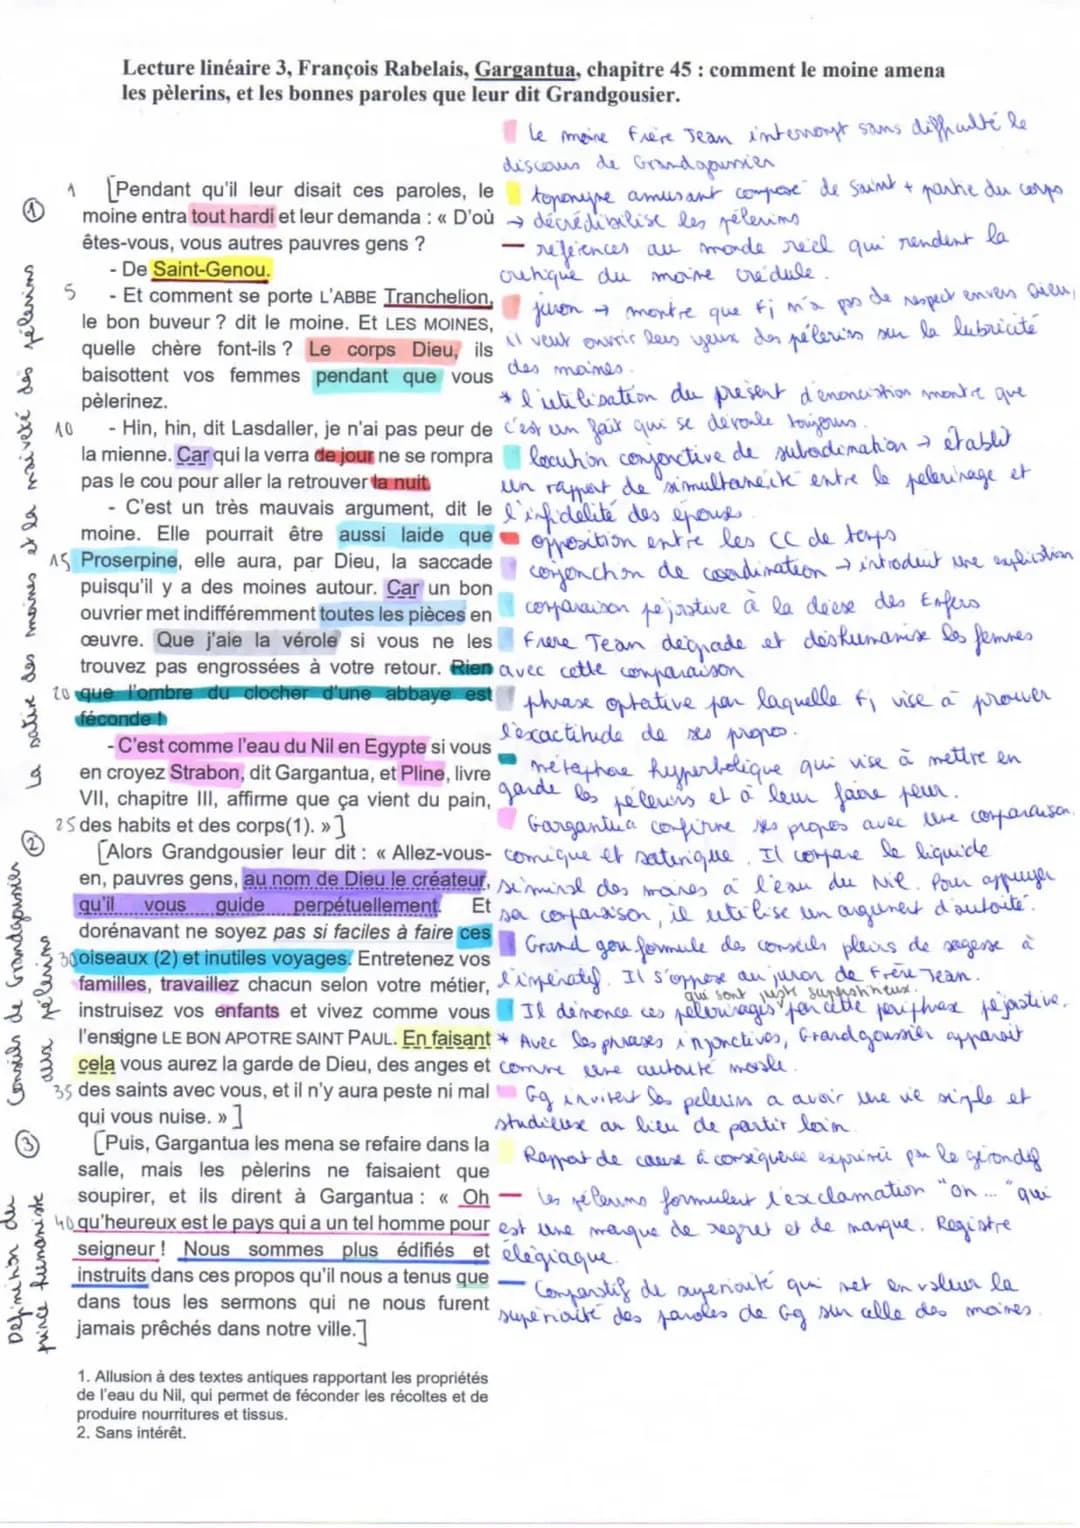 Lecture linéaire 3, François Rabelais, Gargantua, chapitre 45 : comment le moine amena
les pèlerins, et les bonnes paroles que leur dit Grandgousier.
le moine Frère Jean interrompt sans difficulté le
discours de Grandgousier
toponyme amusant composé de Saint + partie du corps
→ décrédibilise les pélerins
— références au monde réel qui rendent la
critique du moine crédule.
juron → montre que Fj n'a pas de respect envers Dieu,
il veut ouvrir les yeux des pélerins sur la lubricité
des moines.
* l'utilisation du présent d'énonciation montre que
c'est un fait qui se déroule toujours.
locution conjonctive de subordination → établit
un rapport de simultanéité entre le pelerinage et
l'infidélité des épouses
opposition entre les CC de temps
conjonction de coordination → introduit une explication
comparaison péjorative à la déese des Enfers
Frère Jean dégrade et déshumanise les femmes
avec cette comparaison
phrase optative par laquelle Fj vise à prouver
l'exactitude de ses propos.
métaphore hyperbolique qui vise à mettre en
garde les pélerins et à leur faire peur.
Gargantua confirme ses propos avec une comparaison
comique et satirique. Il compare le liquide
séminal des moines à l'eau du Nil. Pour appuyer
sa comparaison, il utilise un argument d'autorité.
Grand gou formule des conseils pleins de sagesse à
l'impératif. Il s'oppose au juron de Frère Jean.
qui sont juste superstitieux.
Il dénonce ces pélerinages par cette periphrase péjorative.
* Avec les phrases injonctives, Grandgousier apparait
comme une autorité morale.
Gg invitent les pelerins a avoir une vie simple et
studieuse au lieu de partir loin.
Rapport de cause à conséquence exprimé par le gérondif
— les pélerins formulent l'exclamation "Oh ..." qui
est une marque de regret et de manque. Registre
élégiaque.
— Comparatif de supériorité qui met en valeur la
supériorité des paroles de Gg sur celle des moines.
① La satire des moines et la naïveté des pélerins
1 [Pendant qu'il leur disait ces paroles, le
moine entra tout hardi et leur demanda : « D'où
êtes-vous, vous autres pauvres gens ?
- De Saint-Genou.
5 - Et comment se porte L'ABBE Tranchelion,
le bon buveur ? dit le moine. Et LES MOINES,
quelle chère font-ils ? Le corps Dieu, ils
baisottent vos femmes pendant que vous
pèlerinez.
10 - Hin, hin, dit Lasdaller, je n'ai pas peur de
la mienne. Car qui la verra de jour ne se rompra
pas le cou pour aller la retrouver la nuit.
- C'est un très mauvais argument, dit le
moine. Elle pourrait être aussi laide que
15 Proserpine, elle aura, par Dieu, la saccade
puisqu'il y a des moines autour. Car un bon
ouvrier met indifféremment toutes les pièces en
œuvre. Que j'aie la vérole si vous ne les
trouvez pas engrossées à votre retour. Rien
20 que l'ombre du clocher d'une abbaye est
féconde !
- C'est comme l'eau du Nil en Egypte si vous
en croyez Strabon, dit Gargantua, et Pline, livre
VII, chapitre III, affirme que ça vient du pain,
25 des habits et des corps(1). » ]
② Conseils de Grandgousier
aux pélerins
[Alors Grandgousier leur dit : « Allez-vous-
en, pauvres gens, au nom de Dieu le créateur,
qu'il vous guide perpétuellement. Et
dorénavant ne soyez pas si faciles à faire ces
30 oiseaux (2) et inutiles voyages. Entretenez vos
familles, travaillez chacun selon votre métier,
instruisez vos enfants et vivez comme vous
l'enseigne LE BON APOTRE SAINT PAUL. En faisant
cela vous aurez la garde de Dieu, des anges et
35 des saints avec vous, et il n'y aura peste ni mal
qui vous nuise. » ]
③ Définition du
prince humaniste
[Puis, Gargantua les mena se refaire dans la
salle, mais les pèlerins ne faisaient que
soupirer, et ils dirent à Gargantua : « Oh
40 qu'heureux est le pays qui a un tel homme pour
seigneur ! Nous sommes plus édifiés et
instruits dans ces propos qu'il nous a tenus que
dans tous les sermons qui ne nous furent
jamais prêchés dans notre ville.]
1. Allusion à des textes antiques rapportant les propriétés
de l'eau du Nil, qui permet de féconder les récoltes et de
produire nourritures et tissus.
2. Sans intérêt.